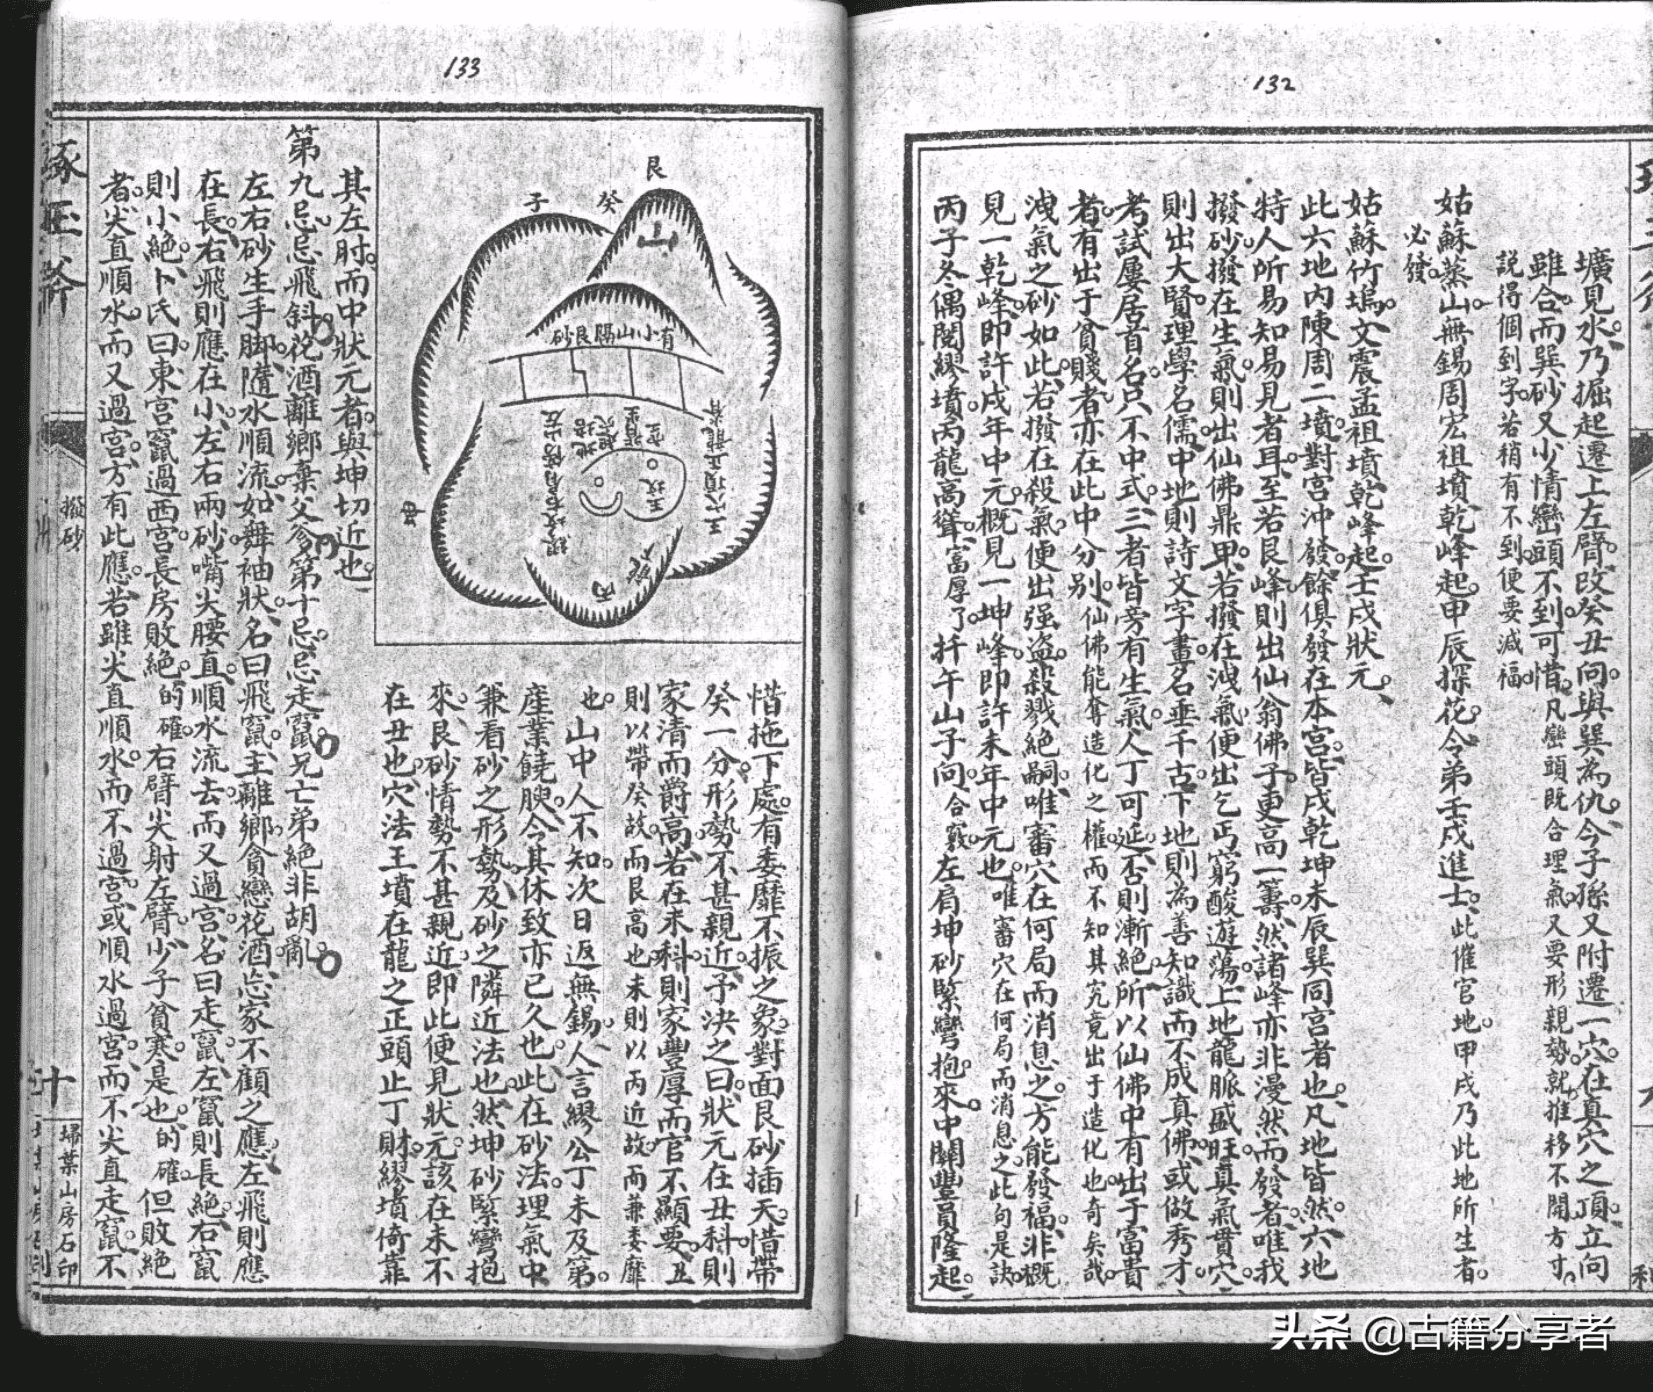 132
壙見水。乃掘起遷上左臂。改癸丑向。與巽為仇。今子孫又附遷一穴。在真穴之頂。立向
雖合。而巽砂又少情。巒頭不到。可惜。凡巒頭既合理氣。又要形親勢就。推移不開方寸。
説得個到字。若稍有不到。便要減福。
姑蘇蒸山。無錫周宏祖墳。乾峰起。甲辰探花。令弟壬戌進士。此催官地。甲戌乃此地所生者。
必發。
姑蘇竹塢。文震孟祖墳。乾峰起。壬戌狀元。
此六地內。陳周二墳。對宮沖發。餘俱發在本宮。皆戌乾坤未辰巽同宮者也。凡地皆然。六地
特人所易知易見者耳。至若艮峰。則出仙翁佛子。更高一籌。然諸峰亦非漫然而發者。唯我
撥砂。撥在生氣。則出仙佛鼎甲。若撥在洩氣。便出乞丐窮酸遊蕩。上地龍脈盛旺。真氣貫穴。
則出大賢。理學名儒。中地則詩文字畫。名垂千古。下地則為善知識。而不成真佛。或做秀才。
考試屢居首名。只不中式。三者皆旁有生氣。人丁可延。否則漸絕。所以仙佛中。有出于富貴
者。有出于貧賤者。亦在此中分別。仙佛能奪造化之權。而不知其究竟出于造化也。奇矣哉
洩氣之砂如此。若撥在殺氣。便出强盜殺戮絕嗣。唯審穴在何局。而消息之。方能發福。非概
見一乾峰。即許戌年中元。概見一坤峰。即許未年中元也。唯審穴在何局而消息之。此向是訣。
丙子冬。偶閱繆墳。丙龍高聳。富厚了。扦午山子向。合竅。左肩坤砂緊彎抱。來中關豐員隆起。
133
艮
癸
子
山
有小山隔艮砂
丙
惜拖下處。有委靡不振之象。對面艮砂插天。惜帶
癸一分。形勢不甚親近。予決之曰。狀元在丑科。則
家清而爵高。若在未科。則家豐厚而官不顯要。丑
則以帶癸故。而艮高也。未則以丙近故。而兼委靡
也。山中人不知。次日返無錫。人言繆公丁未及第。
產業饒腴。今其休致亦已久也。此在砂法理氣中。
兼看砂之形勢。及砂之隣近法也。然坤砂緊彎抱
來。艮砂情勢不甚親近。即此便見狀元。該在未不
在丑也。穴法王墳在龍之正頭。止丁財。繆墳倚靠
其左肘。而中狀元者。與坤切近也。
第九忌。忌飛斜。花酒離鄉棄父爹。第十忌。忌走竄。兄亡弟絕非胡亂。
左右砂生手脚。隨水順流。如舞袖狀。名曰飛竄。主離鄉貪戀花酒。忘家不顧之應。左飛則應
在長。右飛則應在小。左右兩砂。嘴尖腰直。順水流去。而又過宮。名曰走竄。左竄則長絕。右竄
則小絕。卜氏曰。東宮竄過西宮。長房敗絕。的確。右臂尖射左臂。少子貧寒是也。的確。但敗絕
者。尖直順水。而又過宮。方有此應。若雖尖直順水。而不過宮。或順水過宮。而不尖直走竄。不
撥砂
十
掃葉山房石印
头条 @古籍分享者